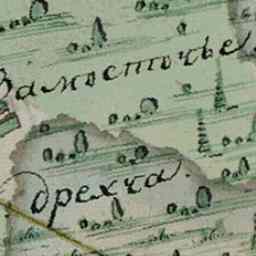 Замосточье.
дрехча.